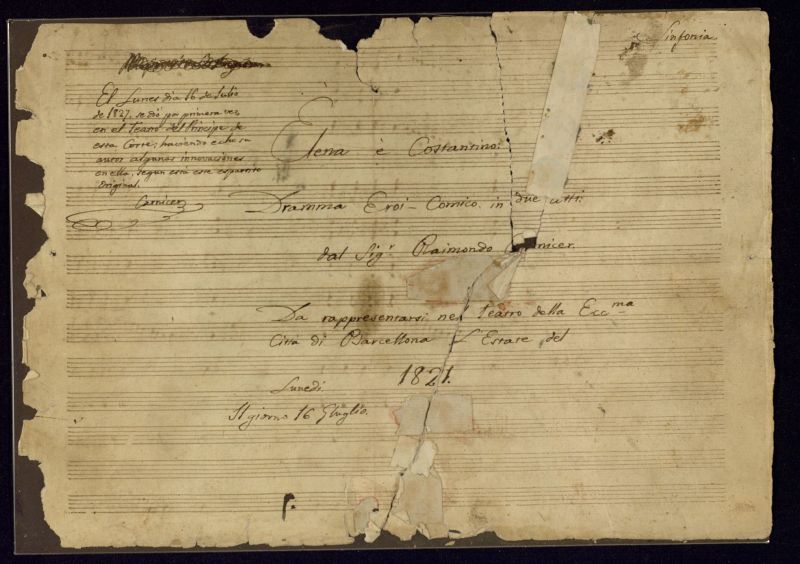 Sinfonia
El Lunes dia 16 de Julio
de 1827. se dió por primera vez
en el Teatro del Principe de
esta Corte; haviendo echo su
autor algunas innovaciones
en ella, segun esta este espartito
original.
Carnicer
Elena è Costantino:
Dramma Eroi-Comico in due atti:
dal Sigr. Raimondo Carnicer.
Da rappresentarsi nel Teatro della Eccma
Città di Barcellona L'Estate del
1821.
Lunedi
Il giorno 16 Gluglio.